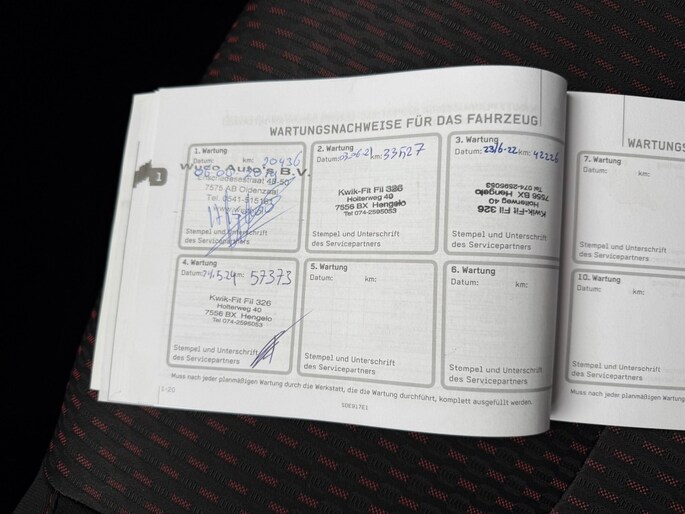 WARTUNGSNACHWEISE FÜR DAS FAHRZEUG
1. Wartung
Datum: km: 20436
Wugo Auto's B.V.
7575 AB Oldenzaal
Stempel und Unterschrift
des Servicepartners
2. Wartung
Datum: km: 33527
Kwik-Fit Fil 326
Holterweg 40
7556 BX Hengelo
Tel 074-2595053
Stempel und Unterschrift
des Servicepartners
3. Wartung
Datum: 23/6-22 km: 42226
Kwik-Fit Fil 326
Holterweg 40
7556 BX Hengelo
Tel 074-2595053
Stempel und Unterschrift
des Servicepartners
4. Wartung
Datum: 24.5.24 km: 57373
Kwik-Fit Fil 326
Holterweg 40
7556 BX Hengelo
Tel 074-2595053
Stempel und Unterschrift
des Servicepartners
5. Wartung
Datum: km:
Stempel und Unterschrift
des Servicepartners
6. Wartung
Datum: km:
Stempel und Unterschrift
des Servicepartners
Muss nach jeder planmäßigen Wartung durch die Werkstatt, die die Wartung durchführt, komplett ausgefüllt werden.
1-20
1
WARTUNGS
7. Wartung
Datum: km:
Stempel und Unterschrift
des Servicepartners
10. Wartung
Datum: km:
Stempel und Unterschrift
des Servicepartners
Muss nach jeder planmäßigen Wartung